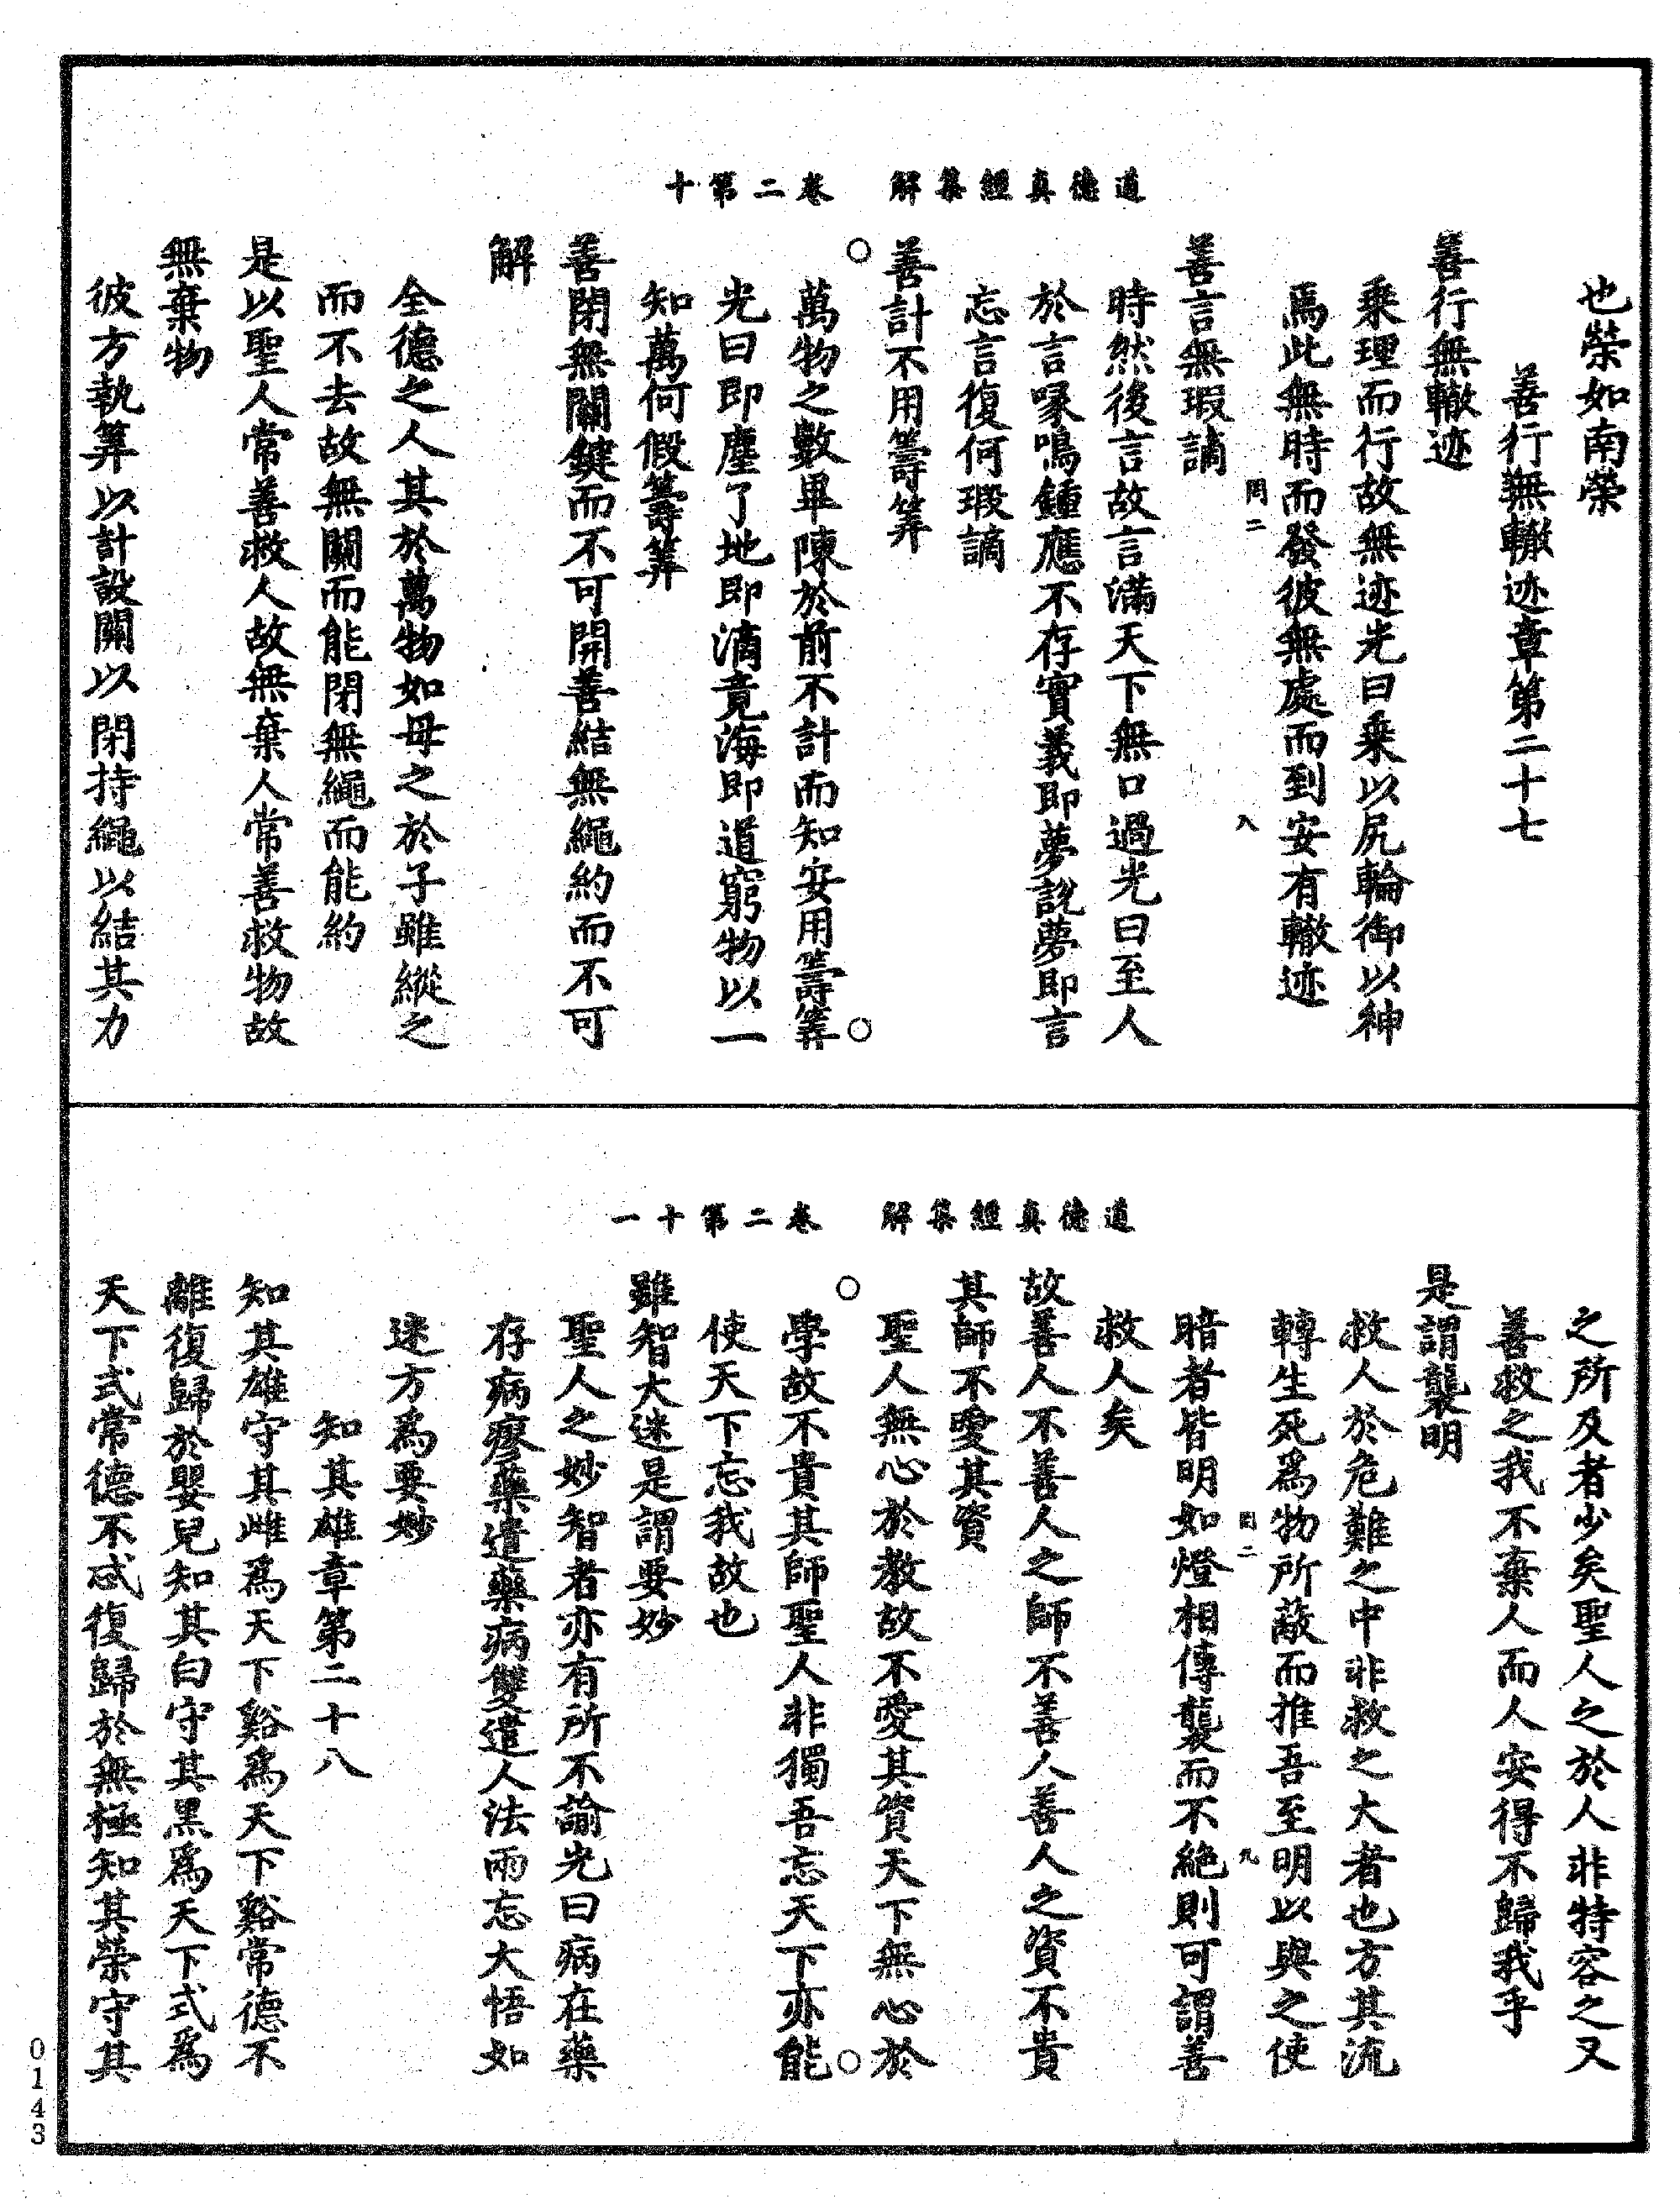 道德真經集解　卷二第十
也榮如南榮
善行無轍迹章第二十七
善行無轍迹
乘理而行故無迹光曰乘以尻輪御以神
爲此無時而發彼無處而到安有轍迹
罔二
八
善言無瑕讁
時然後言故言滿天下無口過光曰至人
於言喙鳴鍾應不存實義即夢說夢即言
忘言復何瑕讁
善計不用籌筭
萬物之數畢陳於前不計而知安用籌筭
光曰即塵了地即滴竟海即道窮物以一
知萬何假籌筭
善閉無關鍵而不可開善結無繩約而不可
解
全德之人其於萬物如母之於子雖縱之
而不去故無關而能閉無繩而能約
是以聖人常善救人故無棄人常善救物故
無棄物
彼方執筭以計設關以閉持繩以結其力
道德真經集解　卷二第十一
之所及者少矣聖人之於人非特容之又
善救之我不棄人而人安得不歸我乎
是謂襲明
救人於危難之中非救之大者也方其流
轉生死爲物所蔽而推吾至明以與之使
罔二
九
暗者皆明如燈相傳襲而不絕則可謂善
救人矣
故善人不善人之師不善人善人之資不貴
其師不愛其資
聖人無心於教故不愛其資天下無心於
學故不貴其師聖人非獨吾忘天下亦能
使天下忘我故也
雖智大迷是謂要妙
聖人之妙智者亦有所不諭光曰病在藥
存病瘳藥遣藥病雙遣人法兩忘大悟如
迷方爲要妙
知其雄章第二十八
知其雄守其雌爲天下谿爲天下谿常德不
離復歸於嬰兒知其白守其黑爲天下式爲
天下式常德不忒復歸於無極知其榮守其
0143